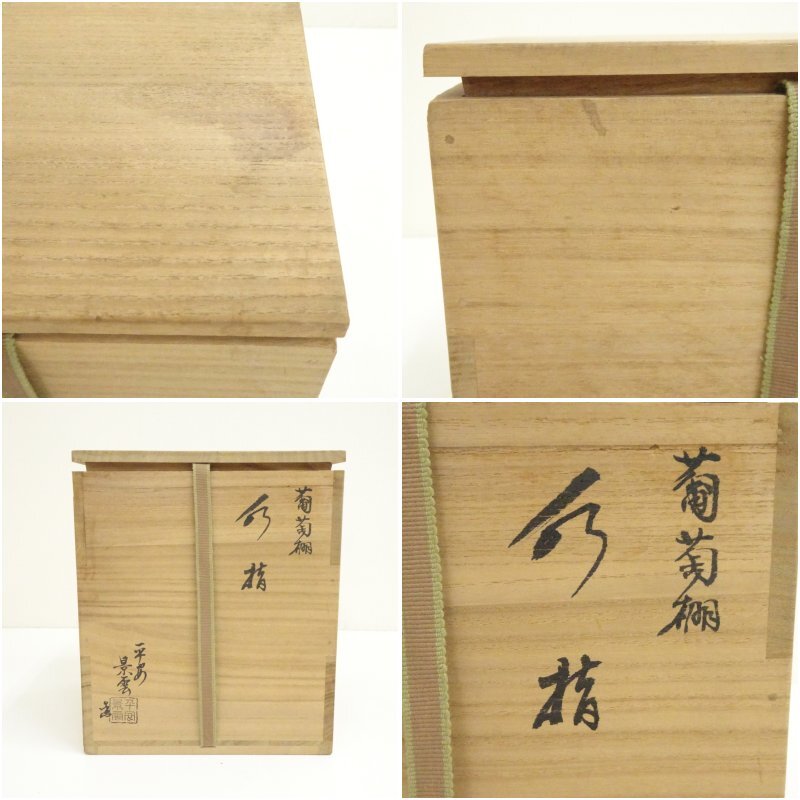 葡萄棚
水指
平安
景雲
葡萄棚
水指